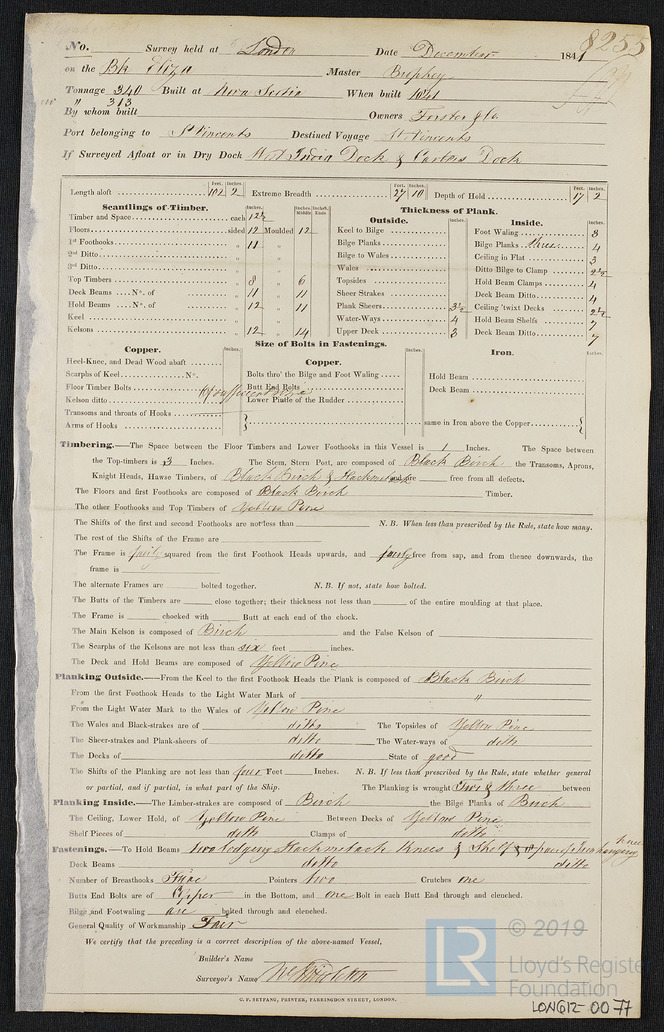 No. Survey held at London Date December 1841 8255
on the Bk Eliza Master
Tonnage 340 Built at Nova Scotia When built 1841
" 313
By whom built Owners Forster & Co.
Port belonging to St Vincents Destined Voyage St Vincents
If Surveyed Afloat or in Dry Dock West India Dock & Dock
Length aloft Feet. 102 Inches. 2 Extreme Breadth Feet. 27 Inches. 10 Depth of Hold Feet. 17 Inches. 2
Scantlings of Timber.
Timber and Space each 12½
Floors sided 12 Moulded 12
1st Foothooks " 11 "
2nd Ditto " "
3rd Ditto " "
Top Timbers " 8 " 6
Deck Beams No. of " 11 " 11
Hold Beams No. of " 12 " 11
Keel " "
Kelsons " 12 " 14
Thickness of Plank.
Outside.
Keel to Bilge
Bilge Planks
Bilge to Wales
Wales
Topsides
Sheer Strakes
Plank Sheers 3½
Water-Ways 4
Upper Deck 3
Inside.
Foot Waling 3
Bilge Planks three 4
Ceiling in Flat 3
Ditto Bilge to Clamp 2½
Hold Beam Clamps 4
Deck Beam Ditto 4
Ceiling 'twixt Decks 2½
Hold Beam Shelfs 7
Deck Beam Ditto 7
Size of Bolts in Fastenings.
Copper.
Heel-Knee, and Dead Wood abaft
Scarphs of Keel No.
Floor Timber Bolts
Kelson ditto
Transoms and throats of Hooks
Arms of Hooks
Copper.
Bolts thro' the Bilge and Foot Waling
Butt End Bolts
Lower Pintle of the Rudder
of sufficient size
Iron.
Hold Beam
Deck Beam
same in Iron above the Copper
Timbering.—The Space between the Floor Timbers and Lower Foothooks in this Vessel is 1 Inches. The Space between
the Top-timbers is 3 Inches. The Stem, Stern Post, are composed of Black Birch the Transoms, Aprons,
Knight Heads, Hawse Timbers, of Black Birch & Hackmatack and are free from all defects.
The Floors and first Foothooks are composed of Black Birch Timber.
The other Foothooks and Top Timbers of Yellow Pine
The Shifts of the first and second Foothooks are not less than N. B. When less than prescribed by the Rule, state how many.
The rest of the Shifts of the Frame are
The Frame is fairly squared from the first Foothook Heads upwards, and fairly free from sap, and from thence downwards, the
frame is
The alternate Frames are bolted together. N. B. If not, state how bolted.
The Butts of the Timbers are close together; their thickness not less than of the entire moulding at that place.
The Frame is chocked with Butt at each end of the chock.
The Main Kelson is composed of Birch and the False Kelson of
The Scarphs of the Kelsons are not less than six feet inches.
The Deck and Hold Beams are composed of Yellow Pine
Planking Outside.—From the Keel to the first Foothook Heads the Plank is composed of Black Birch
From the first Foothook Heads to the Light Water Mark of "
From the Light Water Mark to the Wales of Yellow Pine
The Wales and Black-strakes are of ditto The Topsides of Yellow Pine
The Sheer-strakes and Plank-sheers of ditto The Water-ways of ditto
The Decks of ditto State of good
The Shifts of the Planking are not less than four Feet Inches. N. B. If less than prescribed by the Rule, state whether general
or partial, and if partial, in what part of the Ship. The Planking is wrought Two & three between
Planking Inside.—The Limber-strakes are composed of Birch the Bilge Planks of Birch
The Ceiling, Lower Hold, of Yellow Pine Between Decks of Yellow Pine
Shelf Pieces of ditto Clamps of ditto
Fastenings.—To Hold Beams two lodging Hackmatack Knees & Shelf & pair of Iron hanging knees
Deck Beams ditto ditto
Number of Breasthooks Pointers two Crutches one
Butts End Bolts are of Copper in the Bottom, and one Bolt in each Butt End through and clenched.
Bilge and Footwaling are bolted through and clenched.
General Quality of Workmanship Fair
We certify that the preceding is a correct description of the above-named Vessel,
Builder's Name
Surveyor's Name
C. F. SEYFANG, PRINTER, FARRINGDON STREET, LONDON.
LR © 2019
Lloyd's Register
Foundation
LON612-0077